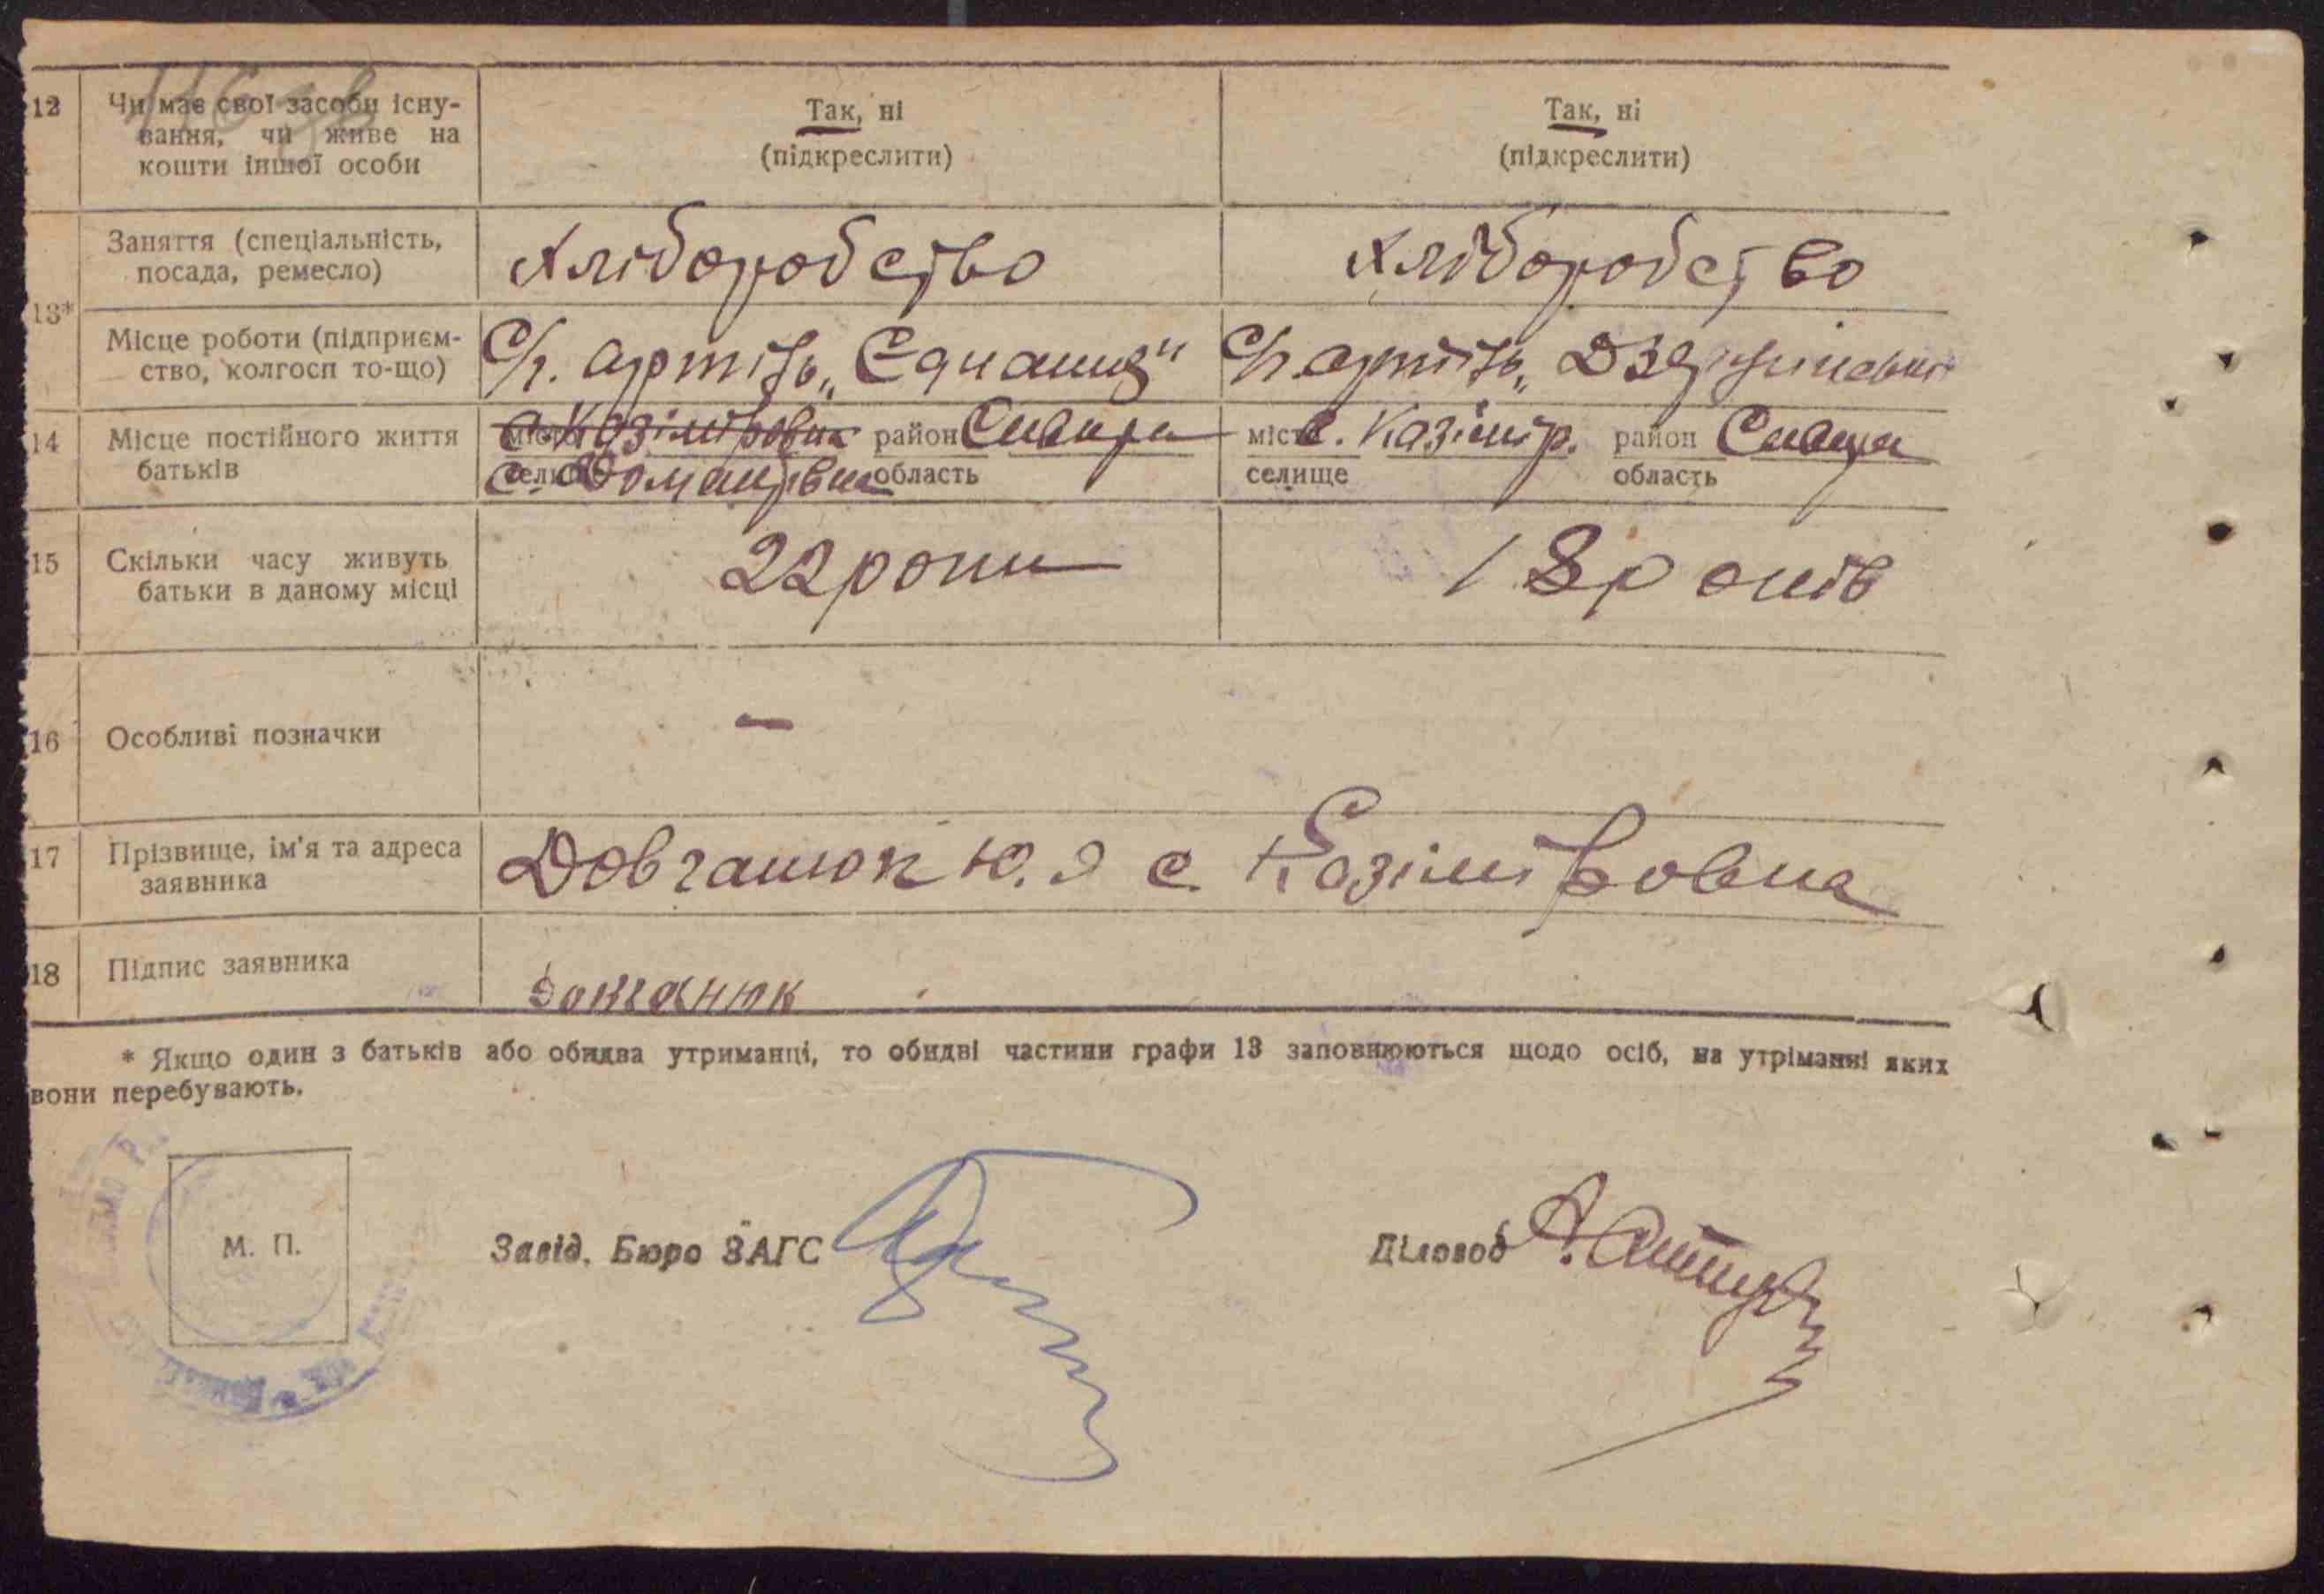 12 Чи має свої засоби існу-
вання, чи живе на
кошти іншої особи
Так, ні
(підкреслити)
Так, ні
(підкреслити)
13*
Заняття (спеціальність,
посада, ремесло)
Хліборобство
Хліборобство
Місце роботи (підприєм-
ство, колгосп то-що)
С/г. артіль „Єднання"
С/г. артіль „
14 Місце постійного життя
батьків
місто с. Казіміровка район
селище с. область
місто с. Казімір. район
селище область
15 Скільки часу живуть
батьки в даному місці
22 роки
18 років
16 Особливі позначки
—
17 Прізвище, ім'я та адреса
заявника
Довганюк Ю. Я с. Казіміровка
18 Підпис заявника
Довганюк
* Якщо один з батьків або обидва утриманці, то обидві частини графи 13 заповнюються щодо осіб, на утріманні яких
вони перебувають.
М. П.
Завід. Бюро ЗАГС
Діловод